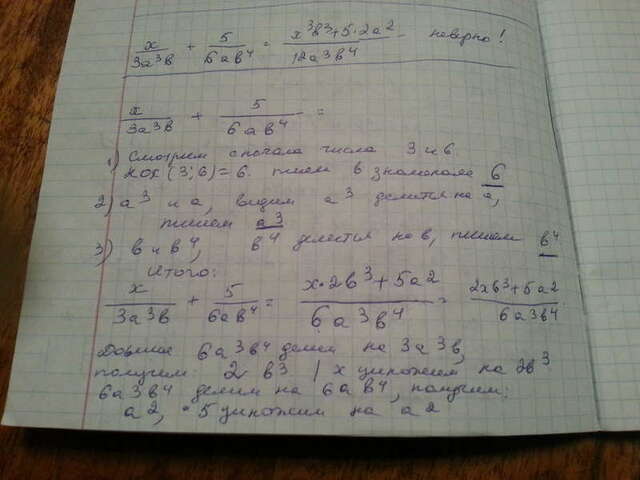 x/3a³b + 5/6ab⁴ = x³b³+5·2a²/12a³b⁴ - неверно!
x/3a³b + 5/6ab⁴ =
1) Смотрим сначала числа 3 и 6.
НОК (3;6)=6. пишем в знаменателе 6
2) a³ и a, видим a³ делится на a,
пишем a³
3) b и b⁴, b⁴ делется на b, пишем b⁴
Итого:
x/3a³b + 5/6ab⁴ = x·2b³+5a²/6a³b⁴ = 2xb³+5a²/6a³b⁴.
Дальше 6a³b⁴ делим на 3a³b,
получим: 2b³ / x умножим на 2b³
6a³b⁴ делим на 6ab⁴, получим:
a², • 5 умножим на a²